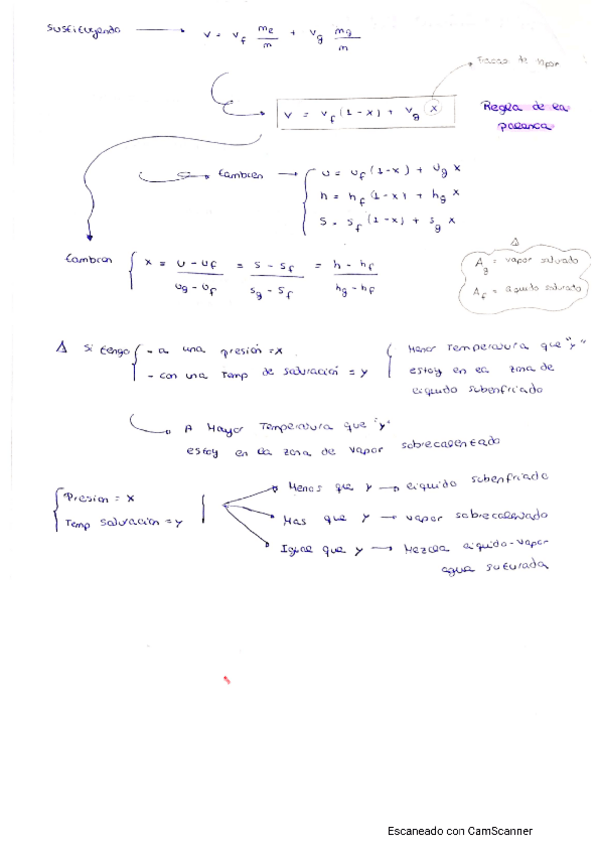 Sustituyendo → v = v_f m_e/m + v_g m_g/m
Trazo de vapor
v = v_f (1-x) + v_g x
Regla de la
palanca
tambien → u = u_f (1-x) + u_g x
h = h_f (1-x) + h_g x
s = s_f (1-x) + s_g x
tambien { x = (u - u_f)/(u_g - u_f) = (s - s_f)/(s_g - s_f) = (h - h_f)/(h_g - h_f)
Δ
A_g = vapor saturado
A_f = liquido saturado
Δ Si tengo { - a una presión = x
- con una Temp de saturación = y
{ Menor Temperatura que "y"
estoy en la zona de
liquido subenfriado
A Mayor Temperatura que "y"
estoy en la zona de vapor sobrecalentado
{ Presion = x
Temp saturación = y
Menos que y → liquido subenfriado
Mas que y → vapor sobrecalentado
Igual que y → Mezcla liquido-vapor
agua saturada
Escaneado con CamScanner